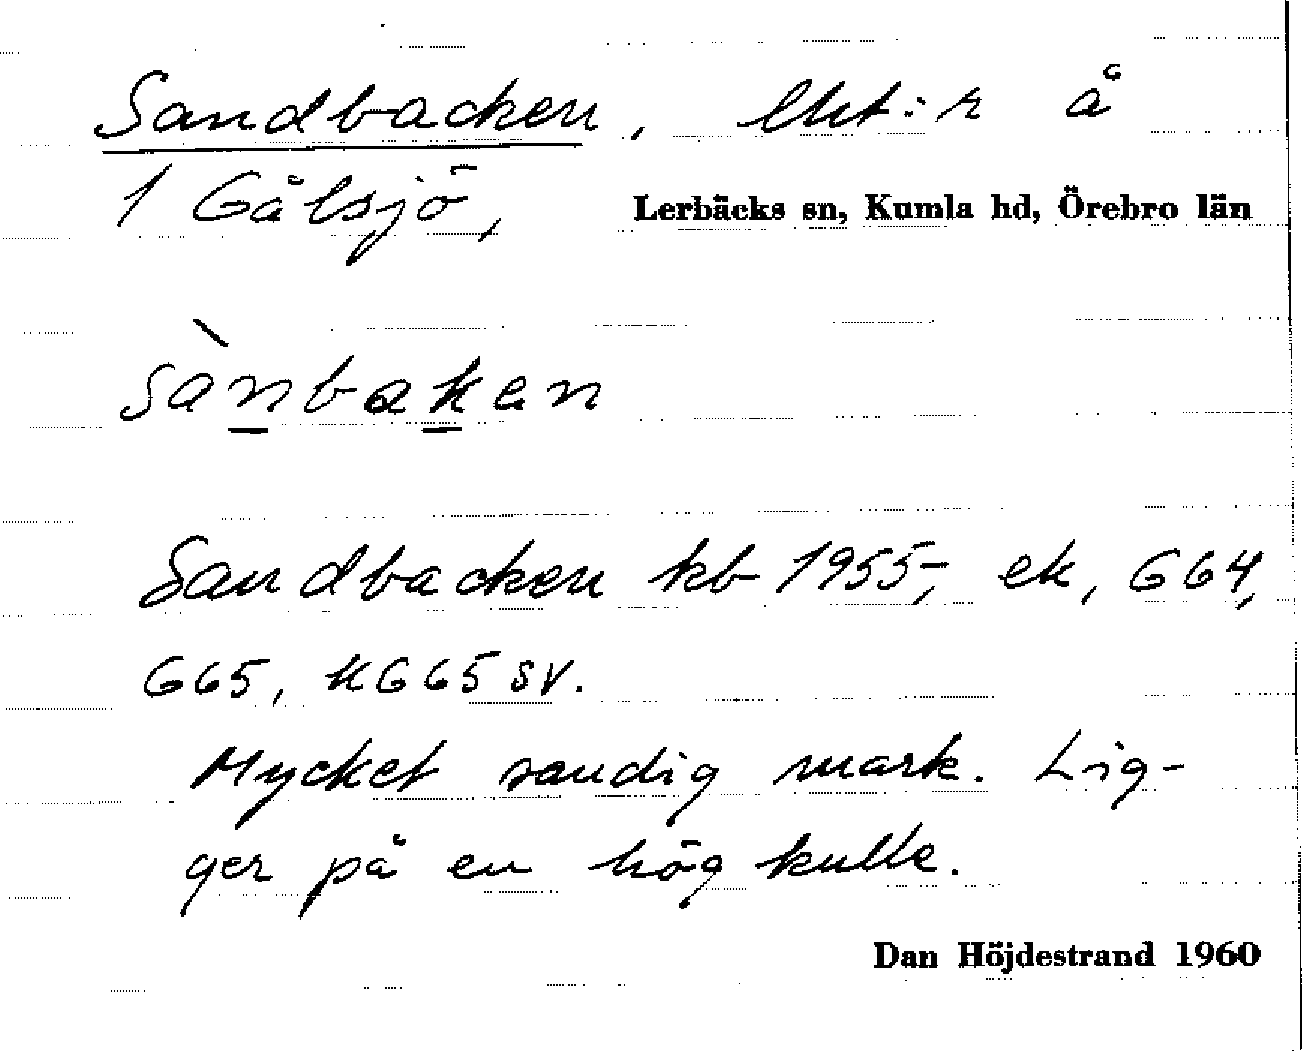 Sandbacken, lht:r å
1 Gålsjö, Lerbäcks sn, Kumla hd, Örebro län
sànbaken
Sandbacken kb 1955, ek, G64,
G65, kG65 sv.
Mycket sandig mark. Lig-
ger på en hög kulle.
Dan Höjdestrand 1960